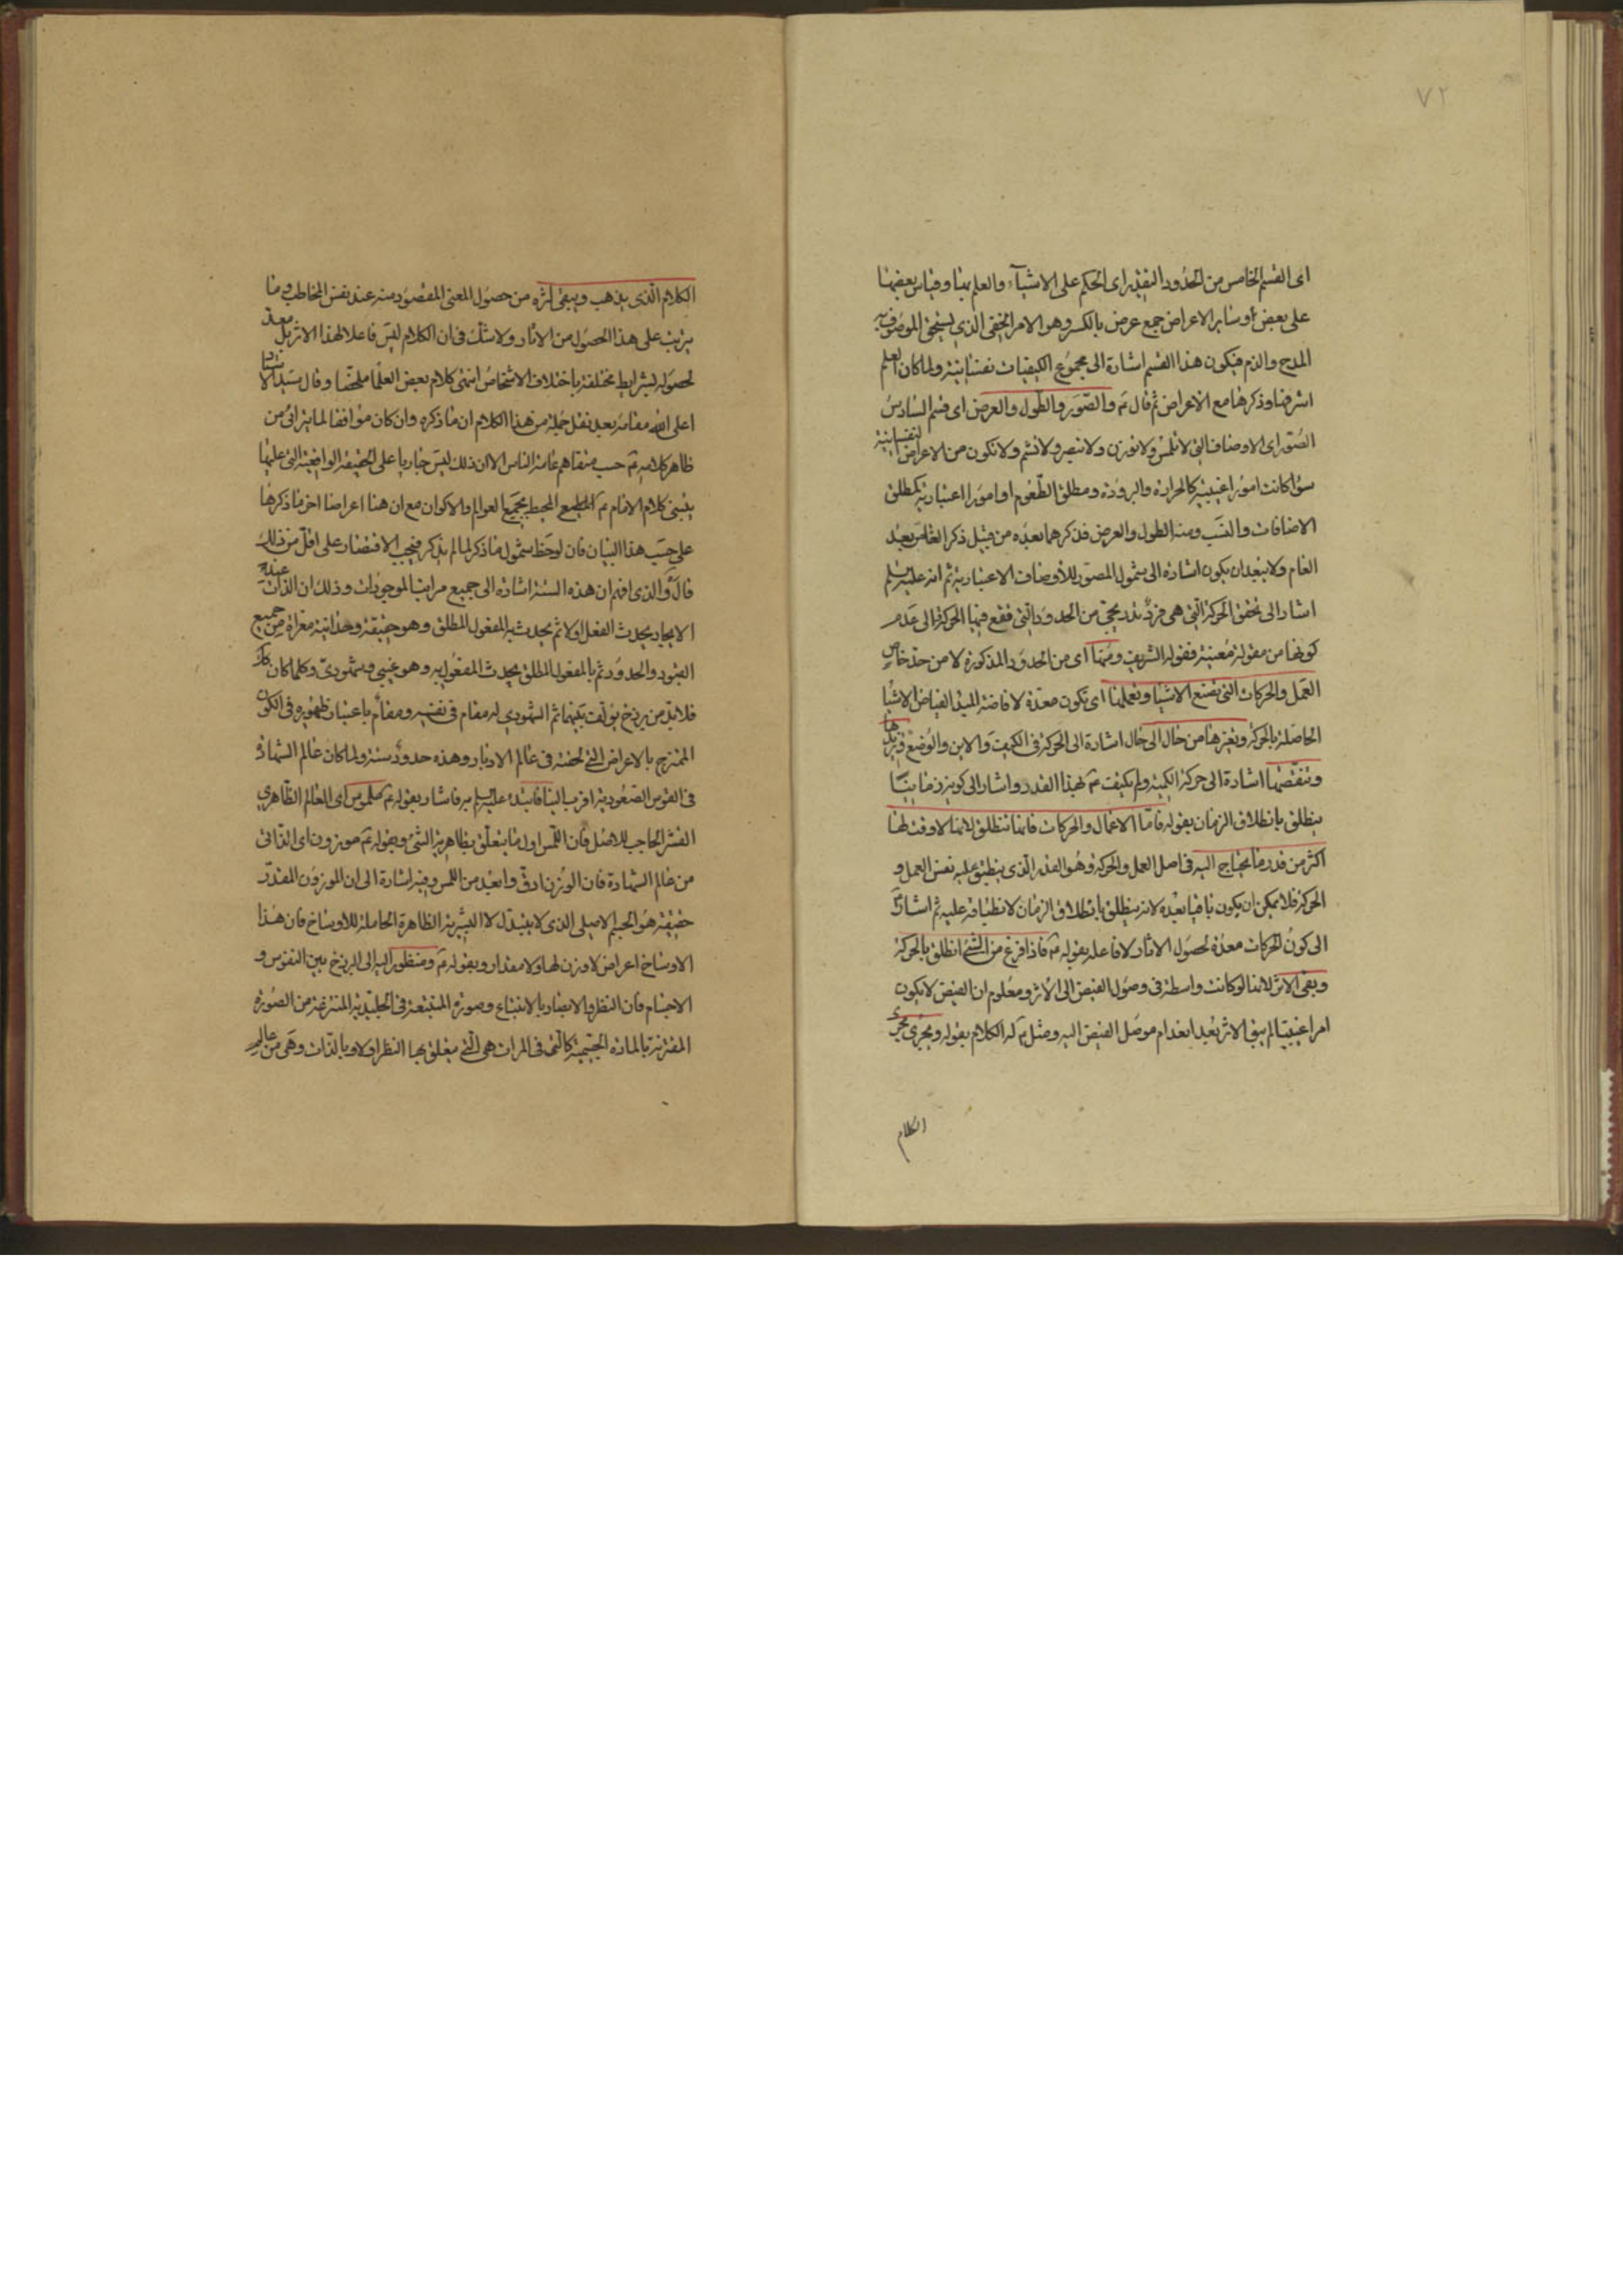 ٧٢
اى القسم الخامس من الحدود التقدير اى الحكم على الاشياء والعلم بها وقياس بعضها
على بعض او سائر الاعراض جمع عرض بالكسر وهو الامر الخفى الذى يستحق الموصوف به
المدح والذم فيكون هذا القسم اشارة الى مجموع الكيفيات نفسانية ولما كان العلم
اشرفها وذكرها مع الاعراض ثم قال ع والصور والطول والعرض اى قسم السادس
الصور اى الاوصاف التى لا تلمس ولا توزن ولا تبصر ولا تشم ولا تكون من الاعراض النفسانية
سواء كانت امورا عينية كالحرارة والبرودة ومطلق الطعوم او امورا اعتبارية كمطلق
الاضافات والنسب ومنه الطول والعرض فذكرهما بعده من قبيل ذكر الخاص بعد
العام ولا يبعد ان يكون اشارة الى شمول الصور للاوصاف الاعتبارية ثم انه عليه السلم
اشار الى تحقق الحركة التى هى فرد تدريجى من الحدود التى تقع فيها الحركة الى عدم
كونها من مقولة معينة فقوله الشريف ومنها اى من الحدود المذكورة لا من حد خاص
العمل والحركات التى تصنع الاشيا وتعملها اى تكون معدة لافاضة المبدا الفياض الاشيا
الحاصلة بالحركة وتغيرها من حال الى حال اشارة الى الحركة فى الكيف والاين والوضع وتزيدها
وتنقصها اشارة الى حركة الكمية ولم يكتف ع بهذا القدر واشار الى كونه زمانيا
ينطلق بانطلاق الزمان بقوله فاما الاعمال والحركات فانها تنطلق لانها لا وقت لها
اكثر من قدر ما يحتاج اليه فى اصل العمل والحركة وهو القدر الذى ينطبق عليه نفس العمل و
الحركة فلا يمكن ان يكون باقيا بعده لانه ينطلق بانطلاق الزمان لانطباقه عليه ثم اشار
الى كون الحركات معدة لحصول الاثار لا فاعله بقوله ع فاذا فرغ من الشئ انطلق بالحركة
وبقى الاثر لانها لو كانت واسطة فى وصول الفيض الى الاثر ومعلوم ان الفيض لا يكون
امرا عينيا لم يبق الاثر بعد انعدام موصل الفيض اليه ومثل ع له الكلام بقوله ويجرى مجرى
الكلام
الكلام الذى يذهب ويبقى اثره من حصول المعنى المقصود منه عند نفس المخاطب وما
يترتب على هذا الحصول من الاثار ولا شك فى ان الكلام ليس فاعلا لهذا الاثر بل معد
لحصوله بشرايط مختلفة باختلاف الاشخاص انتهى كلام بعض العلما ملخصا وقال سيدنا الاستاد
اعلى الله مقامه بعد نقل جملة من هذا الكلام ان ما ذكره وان كان موافقا لما يترائى من
ظاهر كلامه ع حسب متفاهم عامة الناس الا ان ذلك ليس جاريا على الحقيقة الواقعية التى عليها
يبتنى كلام الامام ع المطلع المحيط بجميع العوالم والاكوان مع ان هنا اعراضا اخر ما ذكرها
على حسب هذا البيان فان لوحظ شمول ما ذكر لما لم يذكر فيجب الاقتصار على اقل من ذلك
قال والذى افهم ان هذه الستة اشارة الى جميع مراتب الموجودات وذلك ان الذات عند
الايجاد يحدث الفعل اولا ثم يحدث به المفعول المطلق وهو حقيقة وحدانية معراة من جميع
القيود والحدود ثم بالمفعول المطلق يحدث المفعول به وهو غيبى وشهودى وكلما كان كك
فلا بد من برزخ يؤلف بينهما ثم الشهودى له مقام فى نفسه ومقام باعتبار ظهوره فى الكون
الممتزج بالاعراض التى لحقته فى عالم الادبار وهذه حدود ستة ولما كان عالم الشهادة
فى القوس الصعودية اقرب الينا فابتدء عليه السلم به فاشار بقوله ع ملموس اى العالم الظاهرى
القشر الحاجب للاصل فان اللمس اول ما يتعلق بظاهرية الشئ وبقوله ع موزون اى الذاتى
من عالم الشهادة فان الوزن ادق وابعد من اللمس وفيه اشارة الى ان الموزون المقدر
حقيقة هو الجسم الاصلى الذى لا يتبدل لا البشرية الظاهرة الحاملة للاوساخ فان هذا
الاوساخ اعراض لا وزن لها ولا مقدار وبقوله ع ومنظور اليه الى البرزخ بين النفوس و
الاجسام فان النظر والابصار بالانتباع وصورة المنتبعة فى الجليدية المنتزعة من الصورة
المقترنة بالمادة الجسمية كالتى فى المرات هى التى يتعلق بها النظر اولا وبالذات وهى من عالم